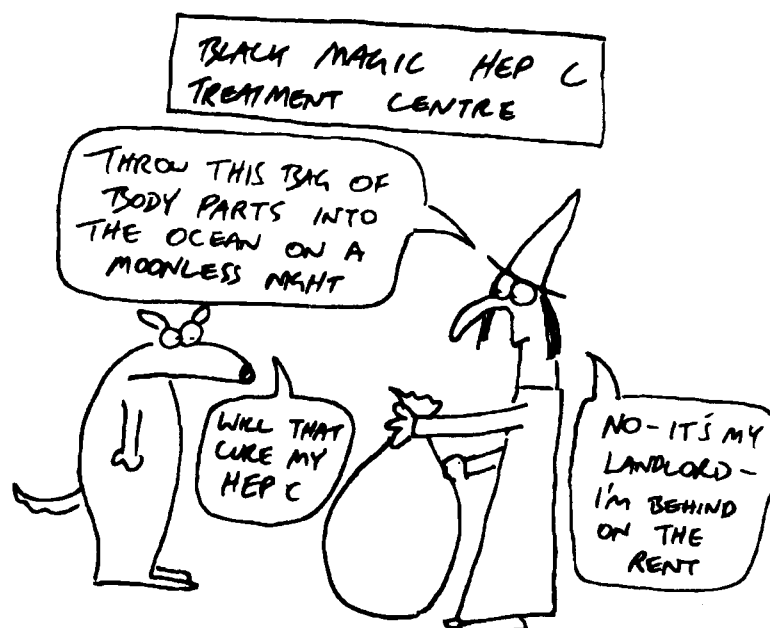 BLACK MAGIC HEP C
TREATMENT CENTRE
THROW THIS BAG OF
BODY PARTS INTO
THE OCEAN ON A
MOONLESS NIGHT
WILL THAT
CURE MY
HEP C
NO - IT'S MY
LANDLORD -
I'M BEHIND
ON THE
RENT